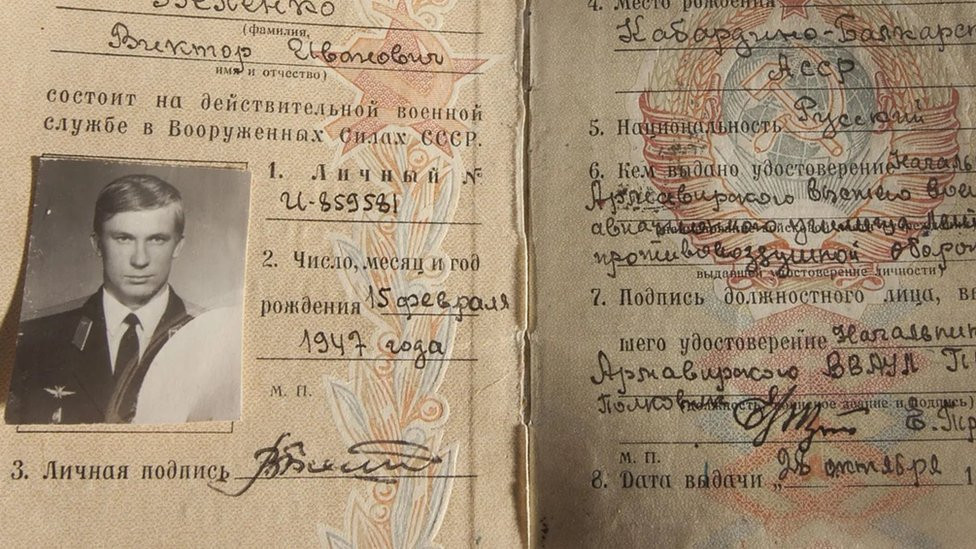 Беленко
(фамилия,
Виктор Иванович
имя и отчество)
состоит на действительной военной
службе в Вооруженных Силах СССР.
1. Личный №
И-859581
2. Число, месяц и год
рождения 15 февраля
1947 года
М. П.
3. Личная подпись
4. Место рождения
Кабардино-Балкарс
АССР
5. Национальность Русский
6. Кем выдано удостоверение Началь
Армавирского высшего вое
авиационного училища
противовоздушной оборо
выдавшей удостоверение личности)
7. Подпись должностного лица, вы
шего удостоверение Начальник
Армавирского ВВАУЛ П
Полковник
М. П.
8. Дата выдачи „28 октября 1